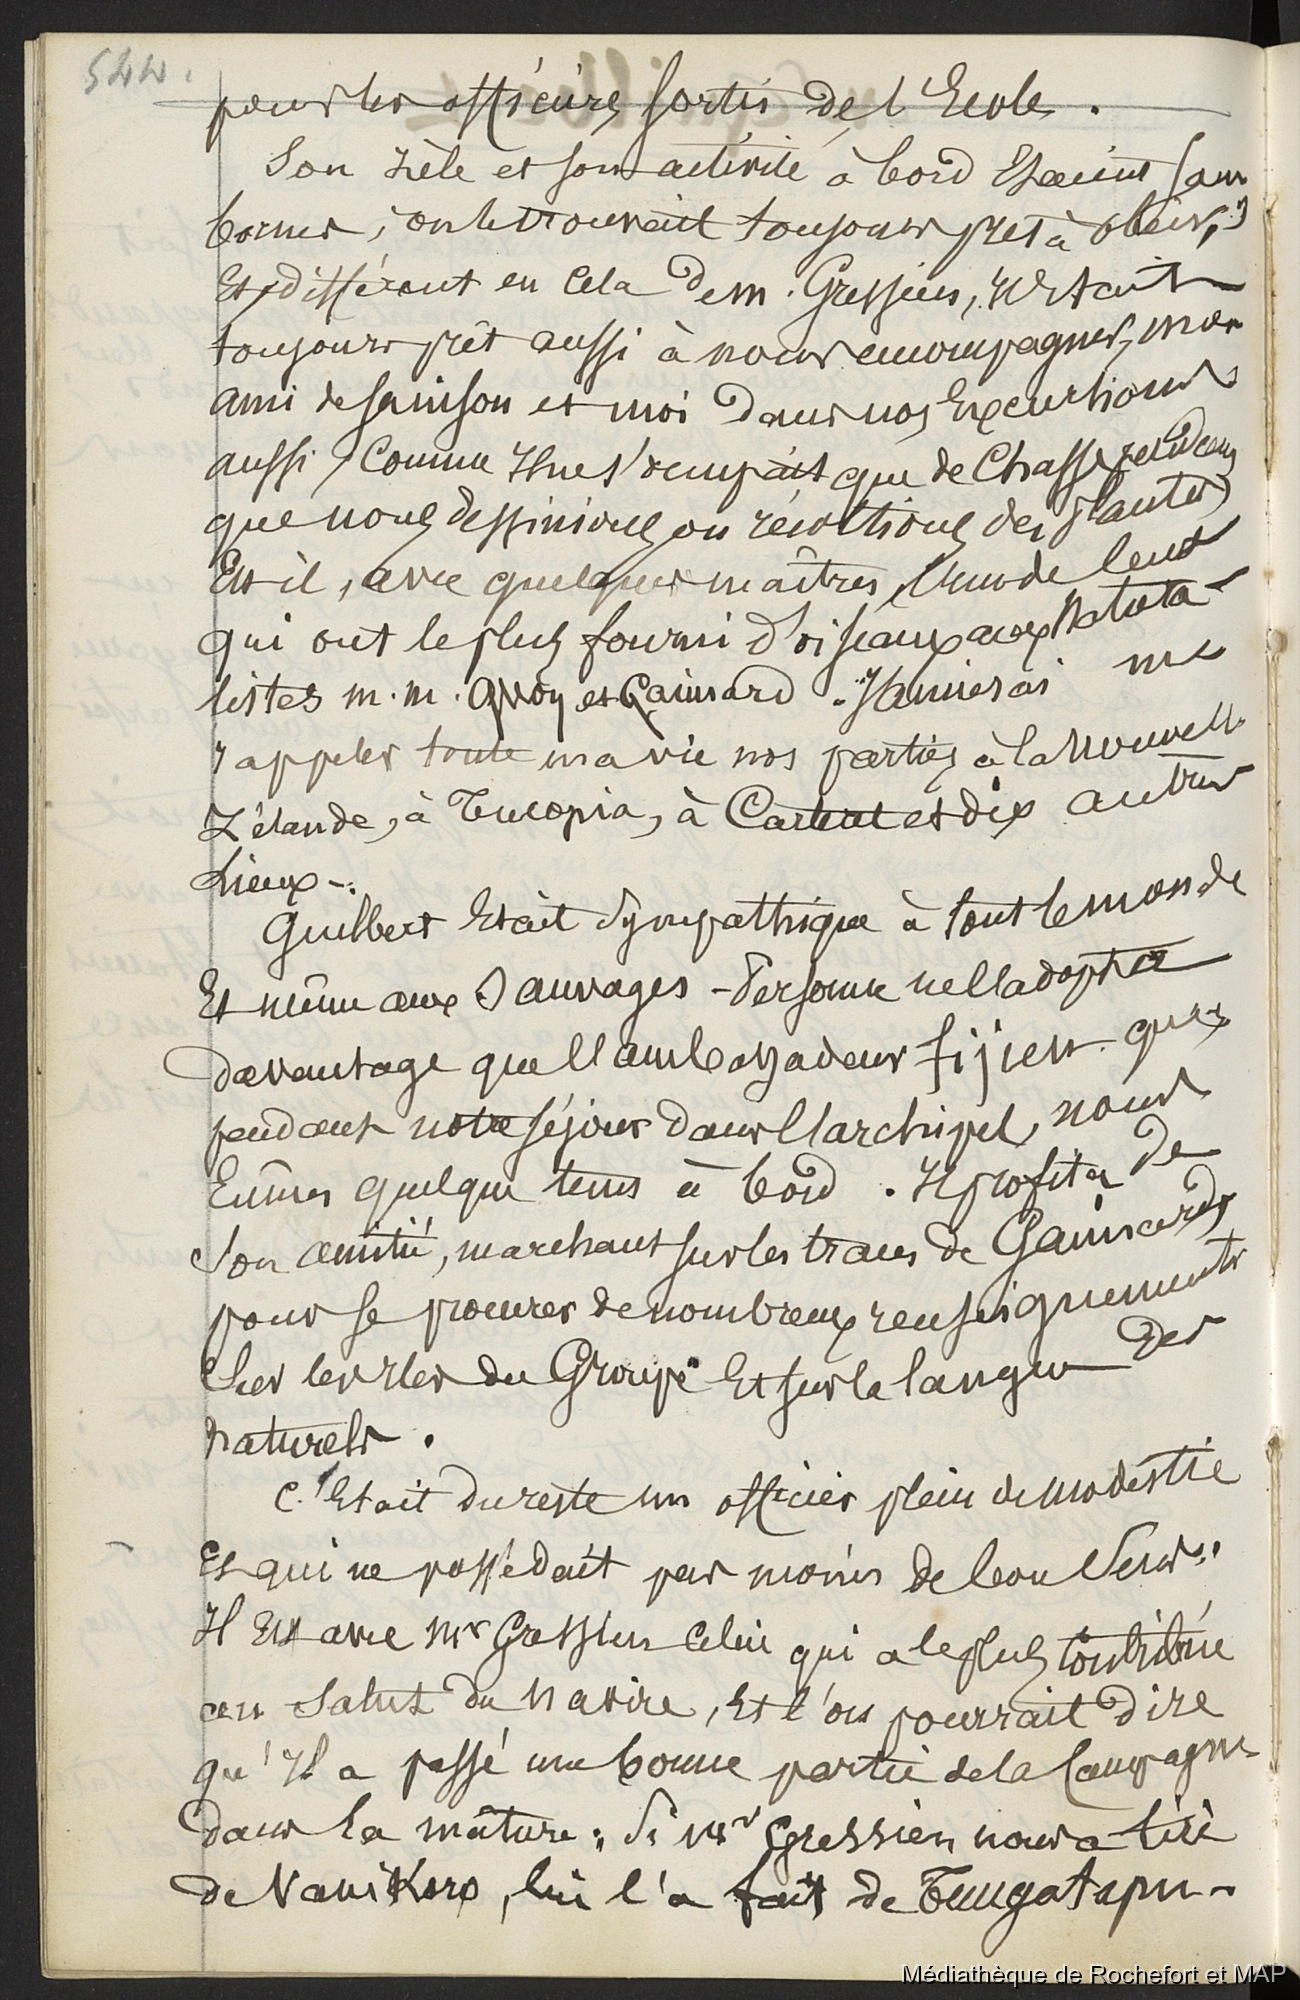 544.
pour les officiers sortis de l'Ecole.
Son zèle et son activité à bord Etaient sans
bornes; on le trouvait toujours prêt à obéir,
Et, différent en cela de m. Gressien, Il Etait
toujours prêt aussi à nous accompagner, mon
ami de Sainson et moi dans nos Excursions
aussi, Comme Il ne s'occupait que de Chasse pendant
que nous dessinions ou récoltions des plantes
Est il, avec quelques maîtres, l'un de ceux
qui ont le plus fourni d'oiseaux aux Natura-
listes m.m. Quoy et Gaimard. J'aimerai me
rappeler toute ma vie nos parties à la Nouvelle
Zélande, à Tucopia, à Carteret et dix autres
Lieux-.
Guilbert Etait Sympathique à tout le monde
Et même aux Sauvages - Personne ne l'adopta
davantage que l'ambassadeur fijien que,
pendant notre séjour dans l'archipel, nous
Eûmes quelque tems à bord. Il profita de
Son amitié, marchant sur les traces de Gaimard,
pour se procurer de nombreux renseignements
Sur les Iles du Groupe Et sur la langue des
Naturels.
C'Etait du reste un officier plein de modestie
Et qui ne possédait pas moins de bon Sens..
Il Est avec Mr Gressien celui qui a le plus contribué
au Salut du Navire, Et l'on pourrait dire
qu'Il a passé une bonne partie de la Campagne
dans la mâture; Si Mr Gressien nous a tiré
de Vanikoro, lui l'a fait de Tongatapu-
Médiathèque de Rochefort et MAP